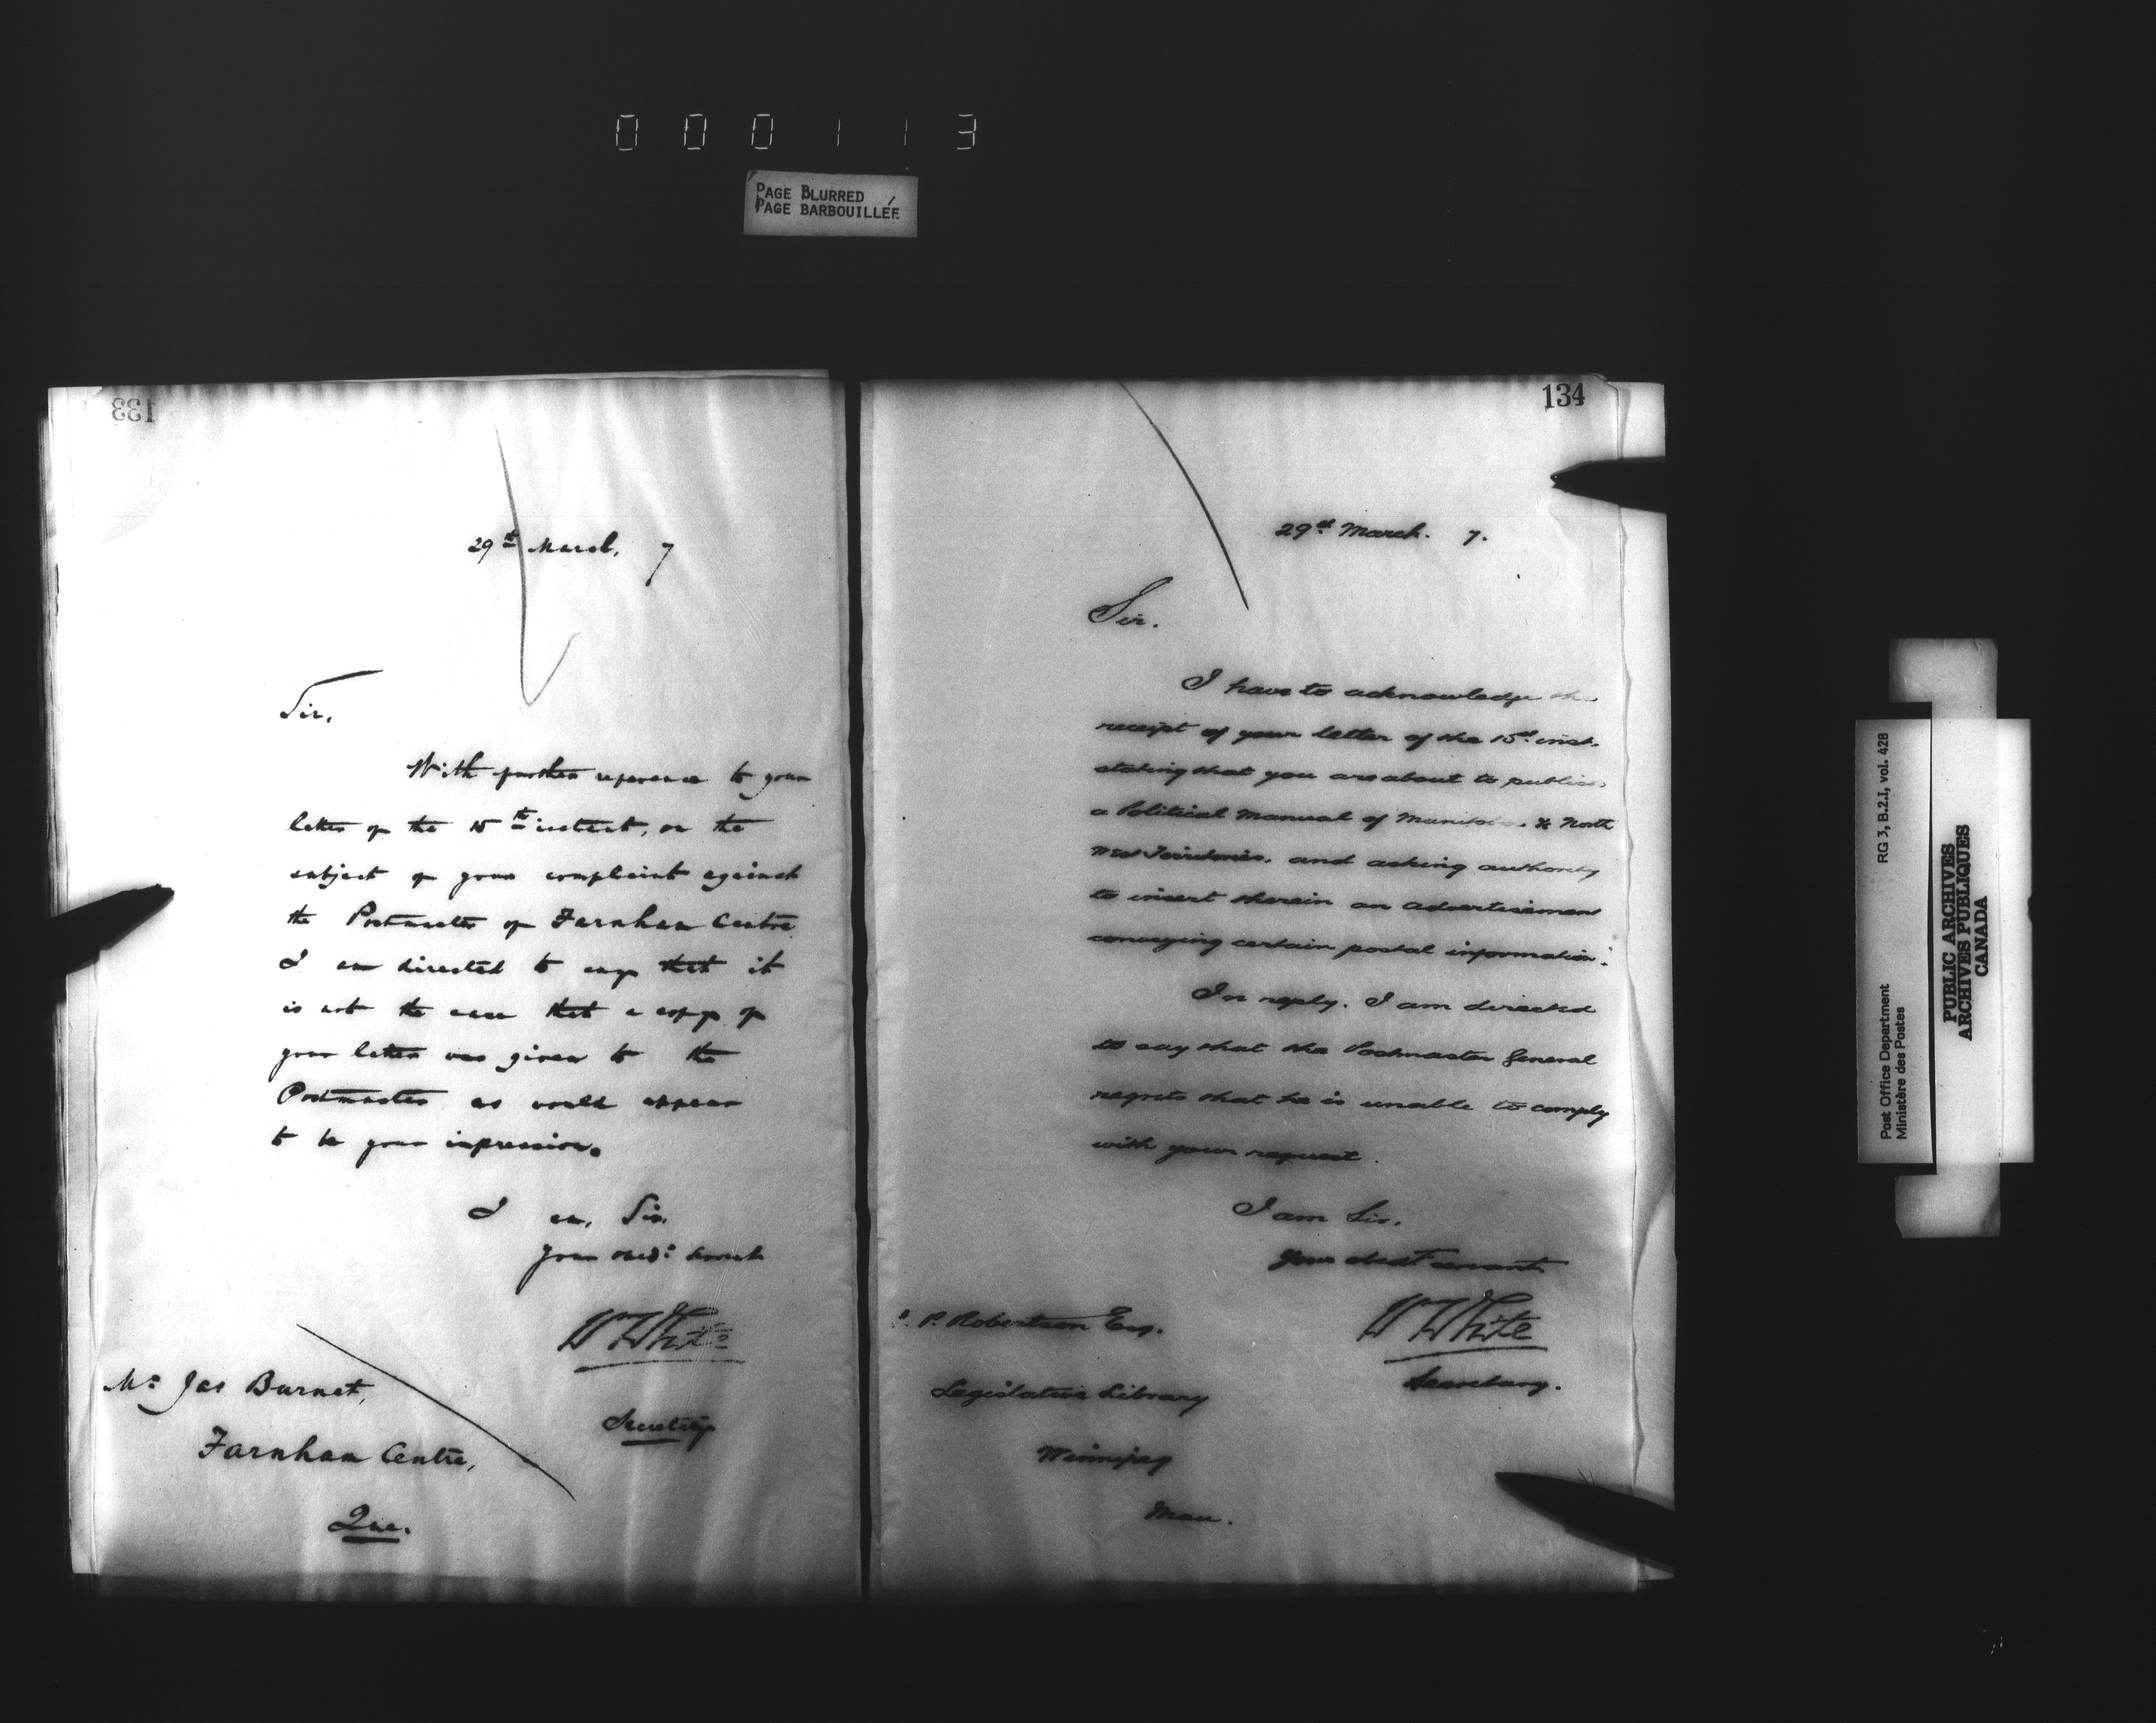 000113
PAGE BLURRED
PAGE BARBOUILLÉE
133
29th March, 7
Sir,
With further reference to your
letter of the 15th instant, on the
subject of your complaint against
the Postmaster of Farnham Centre
I am directed to say that it
is not the case that a copy of
your letter was given to the
Postmaster as would appear
to be your impression.
I am, Sir,
Your obed: servant
W White
Secretary
Mr Jas Burnet,
Farnham Centre,
Que.
134
29th March. 7.
Sir.
I have to acknowledge the
receipt of your letter of the 15th inst.
stating that you are about to publish
a Political Manual of Manitoba & North
West Territories, and asking authority
to insert therein an advertisement
conveying certain postal information.
In reply. I am directed
to say that the Postmaster General
regrets that he is unable to comply
with your request.
I am Sir.
Your obedt servant
W White
Secretary.
P. Robertson Esq.
Legislative Library
Winnipeg
Man.
Post Office Department RG 3, B.2.I, vol. 428
Ministère des Postes
PUBLIC ARCHIVES
ARCHIVES PUBLIQUES
CANADA